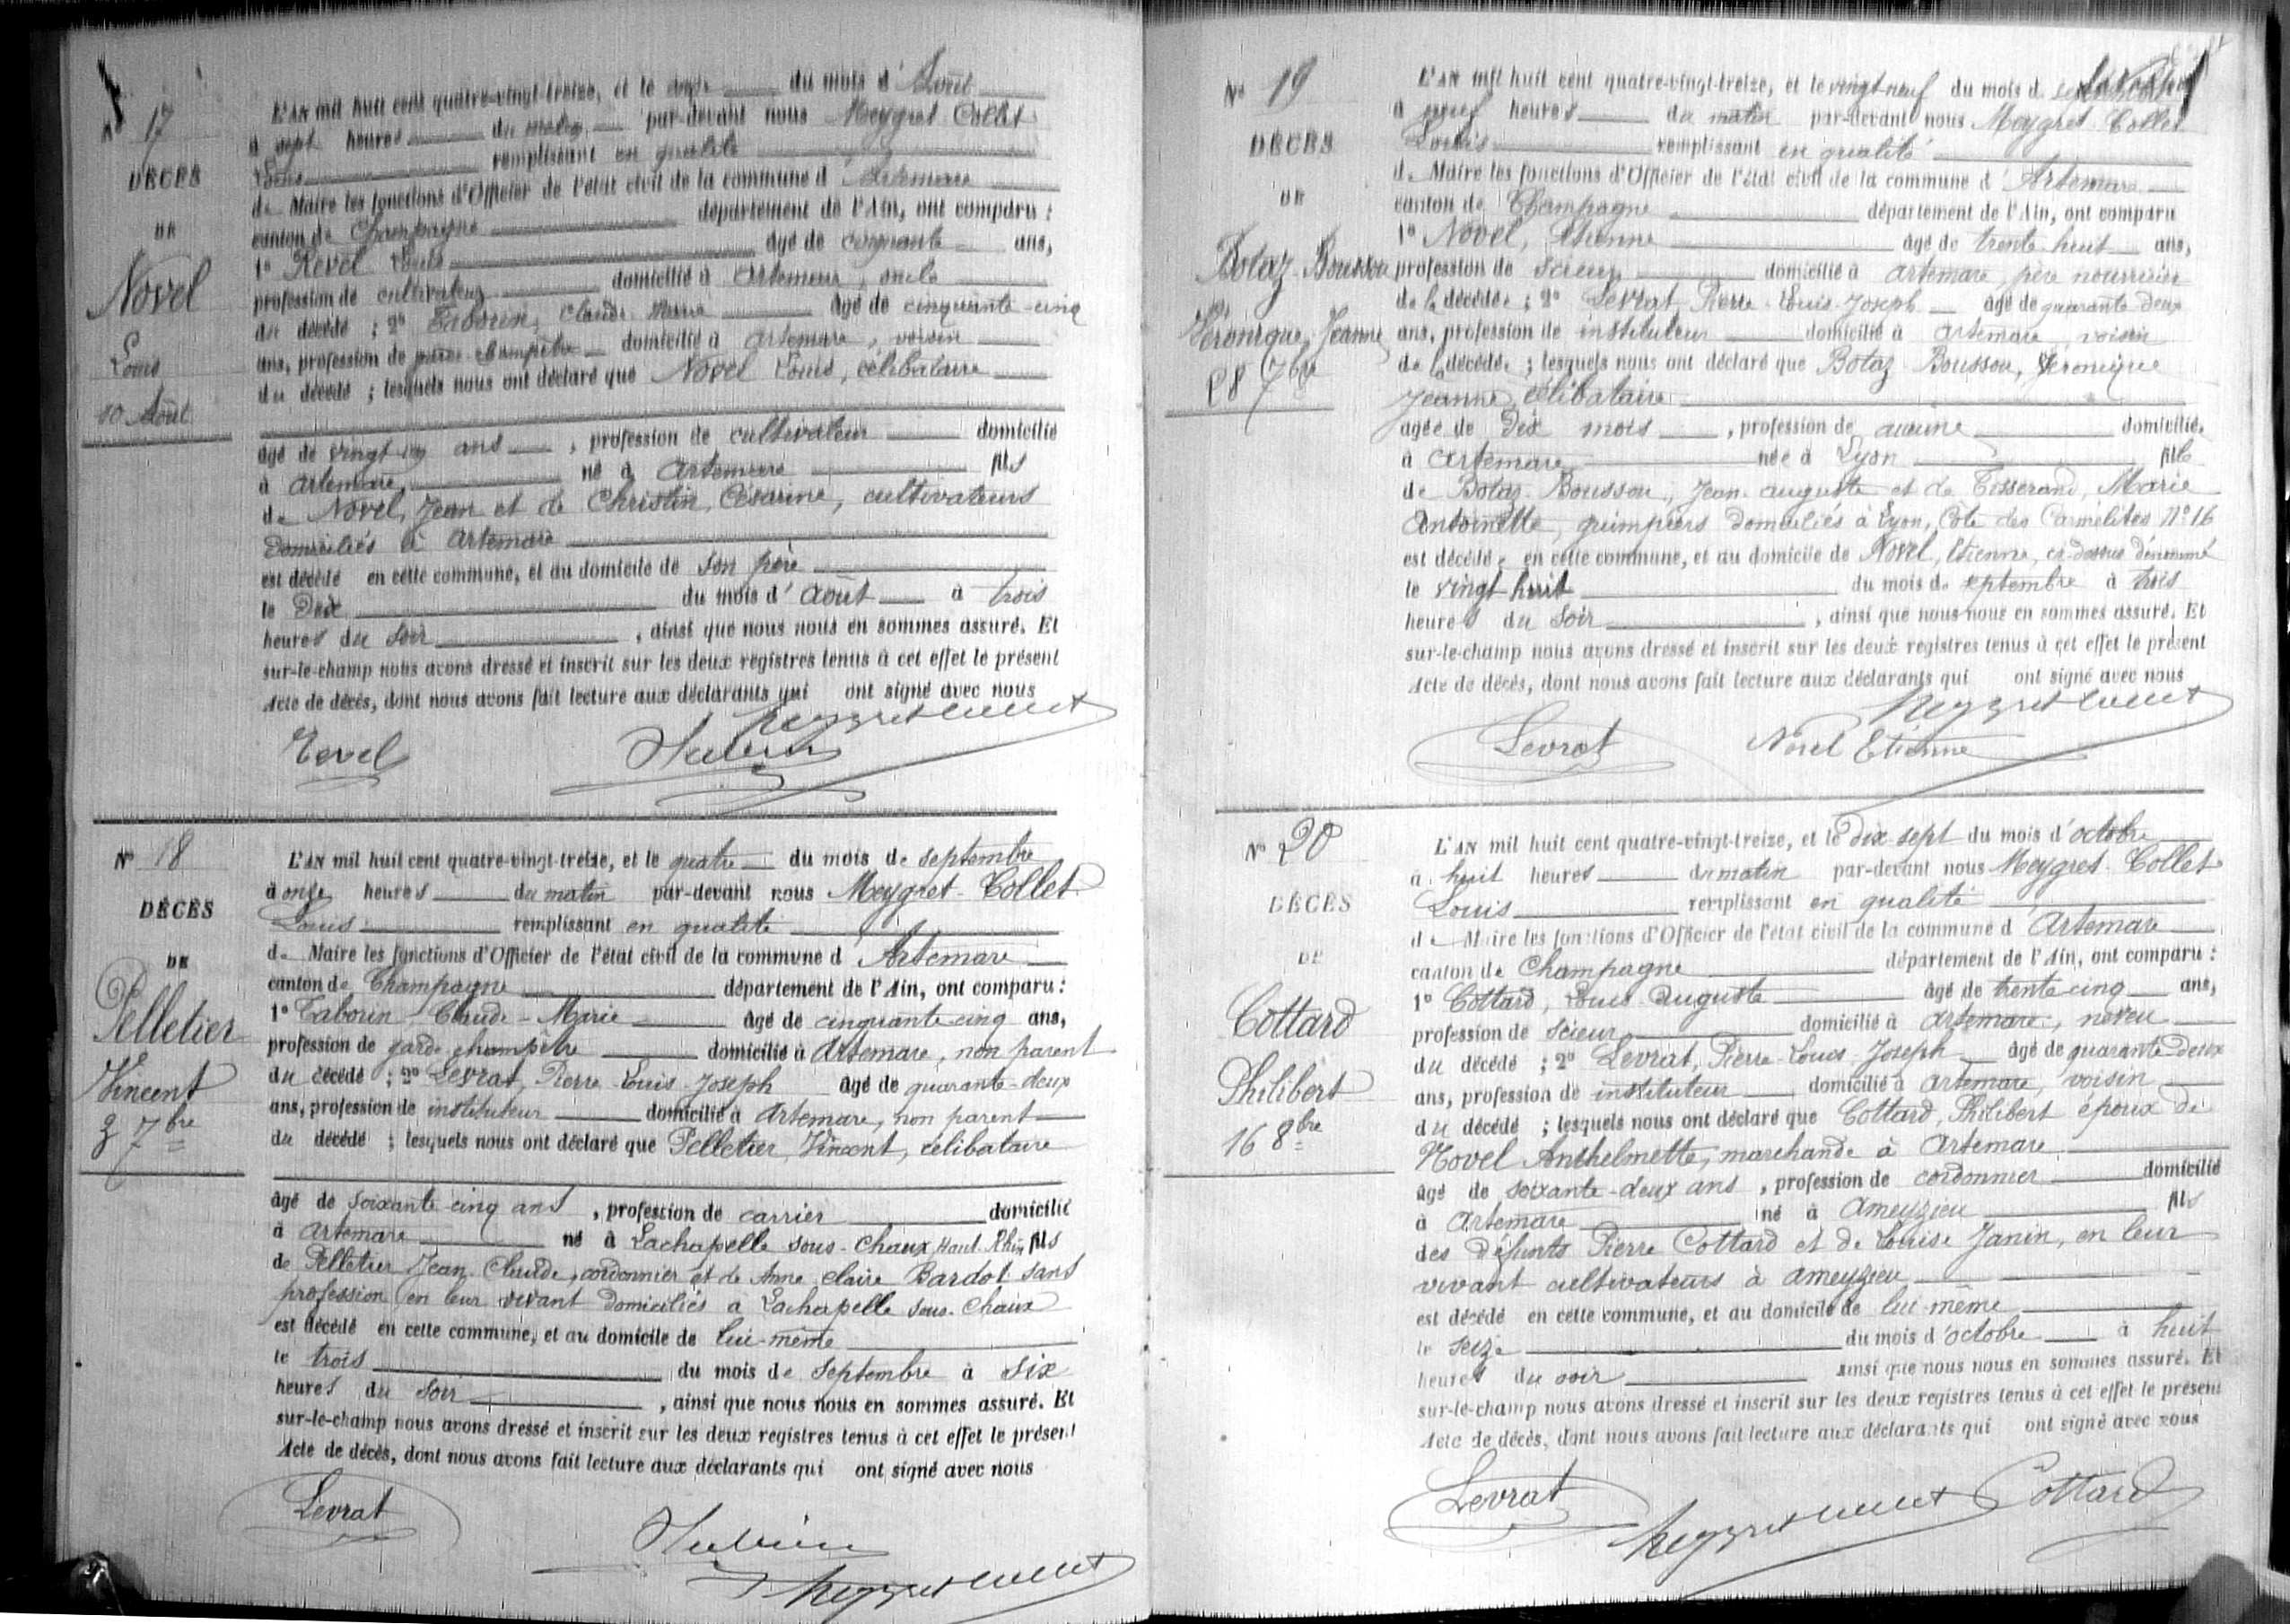 Nº 17
DÉCÈS
DE
Novel
Louis
10 Août
L'AN mil huit cent quatre-vingt-treize, et le onze du mois d'Août
à sept heures du matin par-devant nous Meygret-Collet
Louis remplissant en qualité
de Maire les fonctions d'Officier de l'état civil de la commune d'Artemare
canton de Champagne département de l'Ain, ont comparu :
1º Revel Louis âgé de cinquante ans,
profession de cultivateur domicilié à Artemare, oncle
du décédé ; 2º Taborin, Claude Marie âgé de cinquante-cinq
ans, profession de garde-champêtre domicilié à Artemare, voisin
du décédé ; lesquels nous ont déclaré que Novel Louis, célibataire
âgé de vingt ans, profession de cultivateur domicilié
à Artemare, né à Artemare fils
de Novel, Jean et de Christin, Césarine, cultivateurs
domiciliés à Artemare
est décédé en cette commune, et au domicile de son père
le dix du mois d'août à trois
heures du soir, ainsi que nous nous en sommes assuré. Et
sur-le-champ nous avons dressé et inscrit sur les deux registres tenus à cet effet le présent
Acte de décès, dont nous avons fait lecture aux déclarants qui ont signé avec nous
Revel
Nº 18
DÉCÈS
DE
Pelletier
Vincent
3 7bre
L'AN mil huit cent quatre-vingt-treize, et le quatre du mois de septembre
à onze heures du matin par-devant nous Meygret-Collet
Louis remplissant en qualité
de Maire les fonctions d'Officier de l'état civil de la commune d'Artemare
canton de Champagne département de l'Ain, ont comparu :
1º Taborin Claude-Marie âgé de cinquante cinq ans,
profession de garde champêtre domicilié à Artemare, non parent
du décédé ; 2º Levrat, Pierre-Louis-Joseph âgé de quarante-deux
ans, profession de instituteur domicilié à Artemare, non parent
du décédé ; lesquels nous ont déclaré que Pelletier, Vincent, célibataire
âgé de soixante cinq ans, profession de carrier domicilié
à Artemare né à Lachapelle sous-Chaux Haut-Rhin fils
de Pelletier Jean Claude, cordonnier et de Anne Claire Bardot sans
profession en leur vivant domiciliés à Lachapelle sous-Chaux
est décédé en cette commune, et au domicile de lui-même
le trois du mois de septembre à six
heures du soir, ainsi que nous nous en sommes assuré. Et
sur-le-champ nous avons dressé et inscrit sur les deux registres tenus à cet effet le présent
Acte de décès, dont nous avons fait lecture aux déclarants qui ont signé avec nous
Levrat
Nº 19
DÉCÈS
DE
Botaz-Bousson
Véronique, Jeanne
28 7bre
L'AN mil huit cent quatre-vingt-treize, et le vingt-neuf du mois de septembre
à neuf heures du matin par-devant nous Meygret-Collet
Louis remplissant en qualité
de Maire les fonctions d'Officier de l'état civil de la commune d'Artemare
canton de Champagne département de l'Ain, ont comparu
1º Novel, Etienne âgé de trente-huit ans,
profession de scieur domicilié à Artemare, père nourricier
de la décédée ; 2º Levrat, Pierre-Louis-Joseph âgé de quarante-deux
ans, profession de instituteur domicilié à Artemare voisin
de la décédée ; lesquels nous ont déclaré que Botaz-Bousson, Véronique
Jeanne, célibataire
âgée de dix mois, profession de aucune domiciliée
à Artemare née à Lyon fille
de Botaz-Bousson, Jean-Auguste et de Tisserand, Marie
Antoinette, guimpiers domiciliés à Lyon, Côte des Carmélites Nº 16
est décédée en cette commune, et au domicile de Novel, Etienne, ci-dessus dénommé
le vingt-huit du mois de septembre à trois
heures du soir, ainsi que nous nous en sommes assuré. Et
sur-le-champ nous avons dressé et inscrit sur les deux registres tenus à cet effet le présent
Acte de décès, dont nous avons fait lecture aux déclarants qui ont signé avec nous
Levrat Novel Etienne
Nº 20
DÉCÈS
DE
Cottard
Philibert
16 8bre
L'AN mil huit cent quatre-vingt-treize, et le dix-sept du mois d'octobre
à huit heures du matin par-devant nous Meygret-Collet
Louis remplissant en qualité
de Maire les fonctions d'Officier de l'état civil de la commune d'Artemare
canton de Champagne département de l'Ain, ont comparu :
1º Cottard, Louis-Auguste âgé de trente-cinq ans,
profession de scieur domicilié à Artemare, neveu
du décédé ; 2º Levrat, Pierre-Louis-Joseph âgé de quarante-deux
ans, profession de instituteur domicilié à Artemare, voisin
du décédé ; lesquels nous ont déclaré que Cottard, Philibert époux de
Novel Anthelmette, marchande à Artemare
âgé de soixante-deux ans, profession de cordonnier domicilié
à Artemare né à Ameyzieu fils
des défunts Pierre Cottard et de Louise Janin, en leur
vivant cultivateurs à Ameyzieu
est décédé en cette commune, et au domicile de lui-même
le seize du mois d'octobre à huit
heures du soir ainsi que nous nous en sommes assuré. Et
sur-le-champ nous avons dressé et inscrit sur les deux registres tenus à cet effet le présent
Acte de décès, dont nous avons fait lecture aux déclarants qui ont signé avec nous
Levrat Cottard